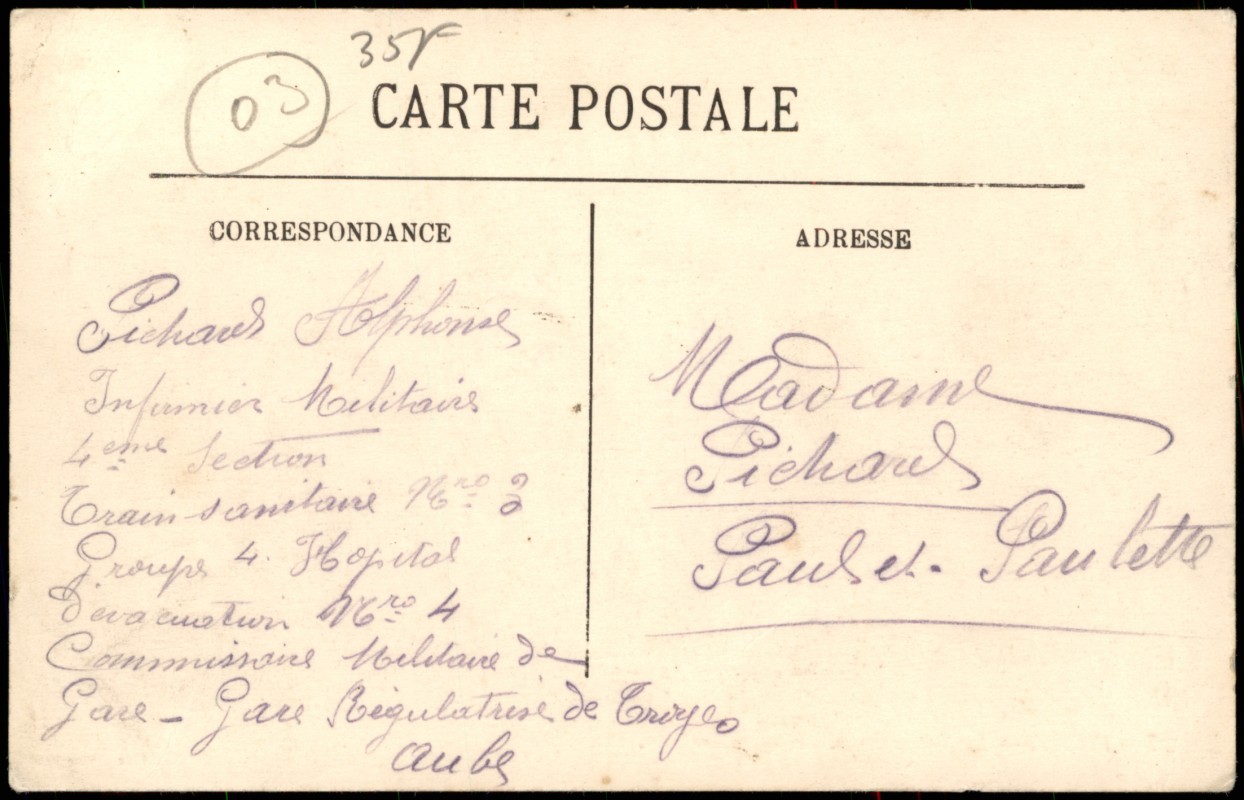 35F
03
CARTE POSTALE
CORRESPONDANCE
Pichard Alphonse
Infirmier Militaire
4eme Section
Train sanitaire Nro 3
Groupe 4. Hopital
d'evacuation Nro 4
Commissaire Militaire de
Gare - Gare Régulatrise de Troyes
Aube
ADRESSE
Madame
Pichard
Paul et. Paulette